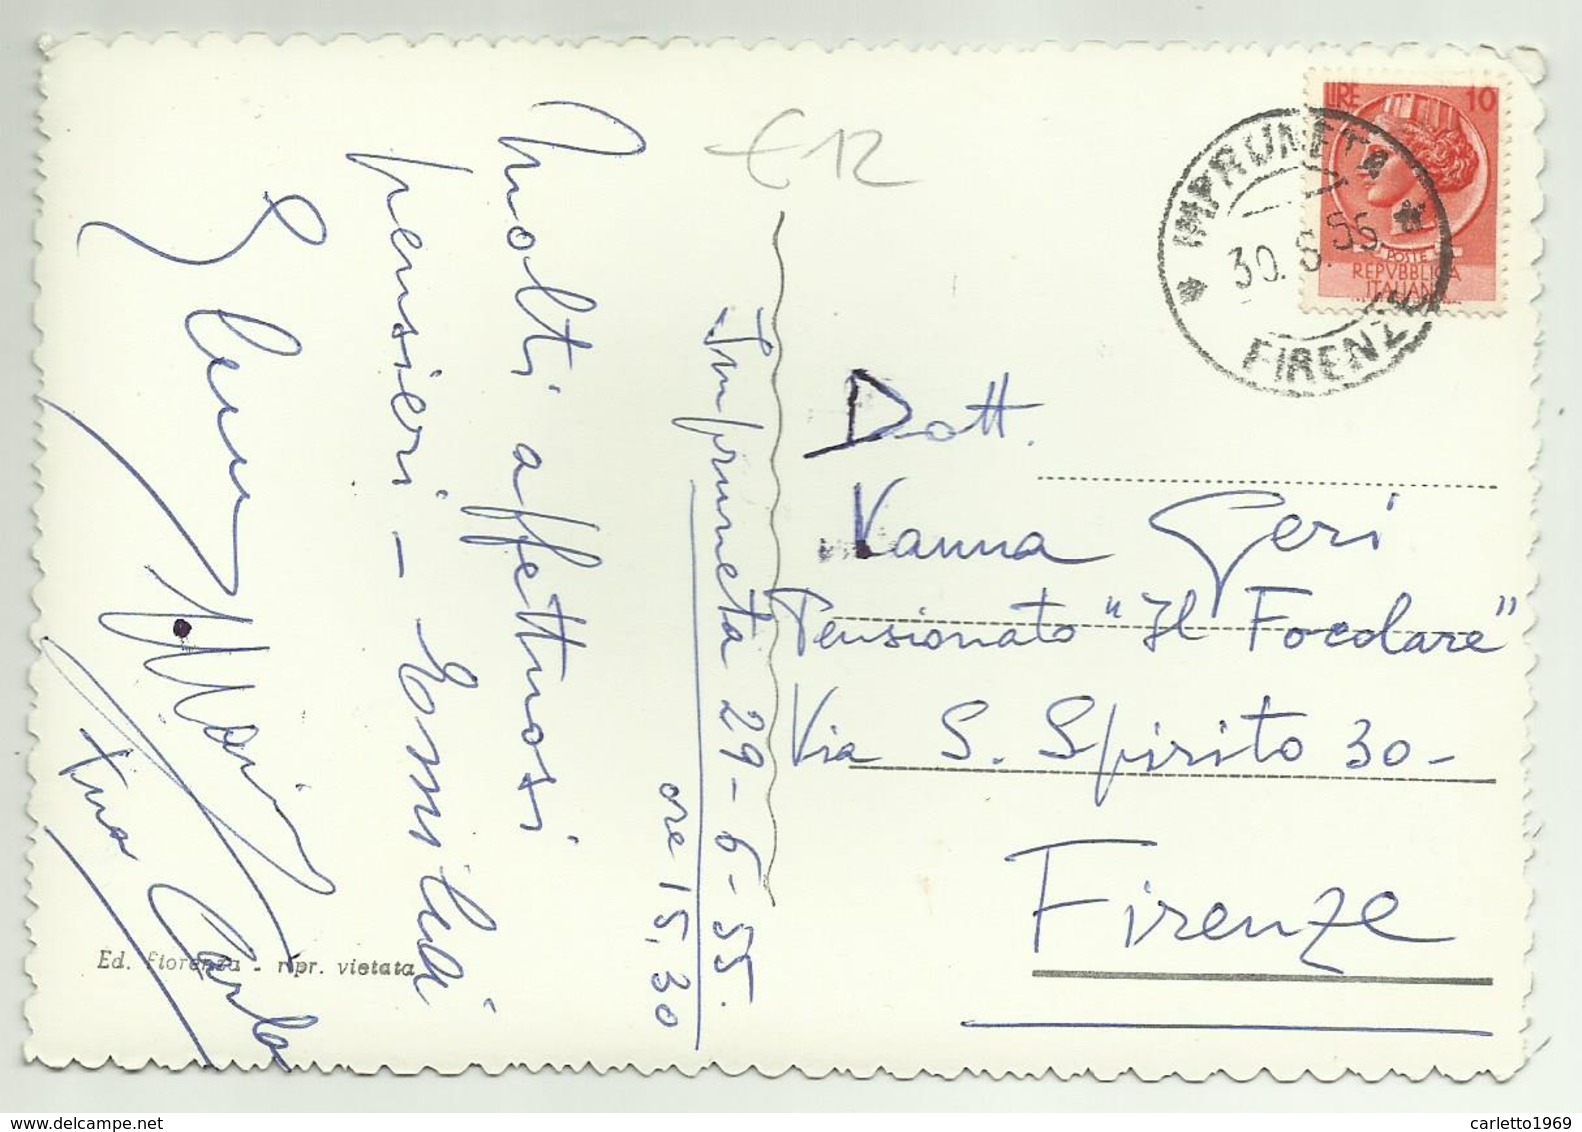 € 12
LIRE 10
POSTE
REPVBBLICA
ITALIANA
* IMPRUNETA *
30.6.55
FIRENZE
Imprumeta 29-6-55.
ore 15,30
Molti affettuosi
pensieri - Ersmilia
Maria
Carla
Dott.
Vanna Geri
Pensionato "Il Focolare"
Via S. Spirito 30-
Firenze
Ed. fiorenza - ripr. vietata
carletto1969
www.delcampe.net